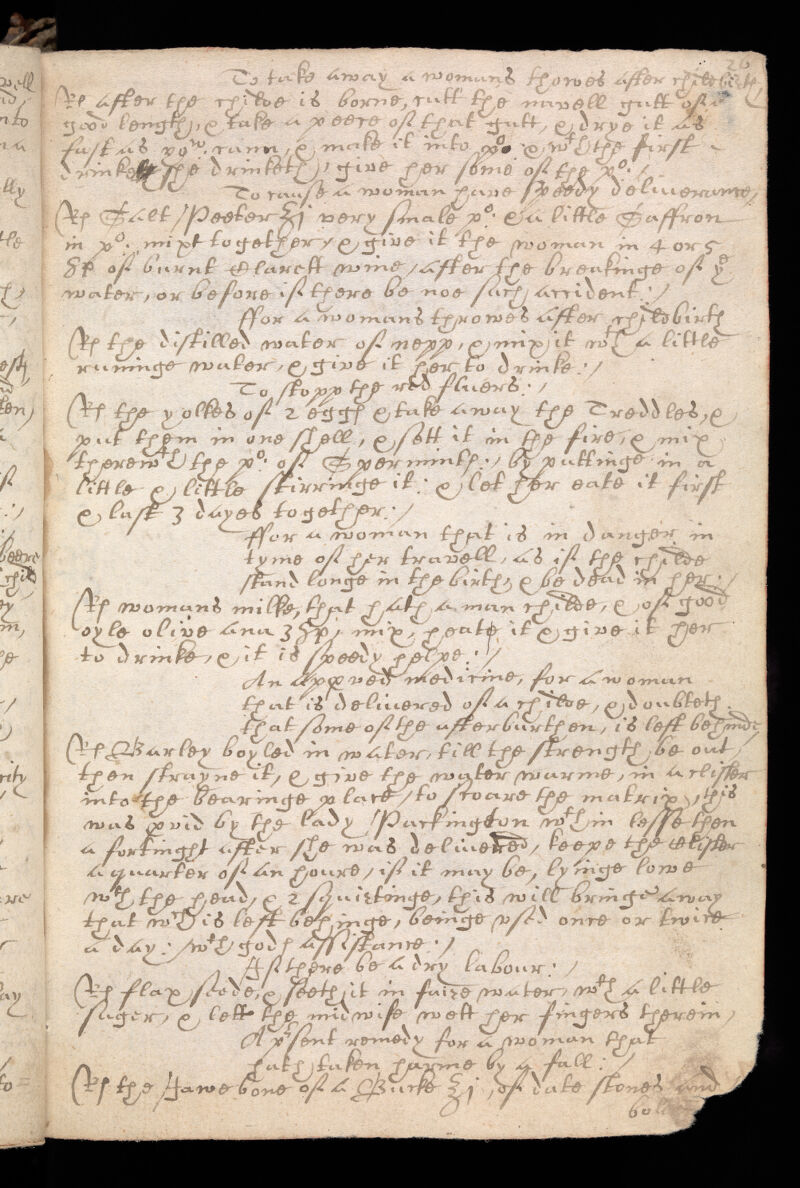 26
To take away a womans throwes after childbirth
Rx after the childe is borne, cutt the navell gutt of a
good length, & take a peece of that gutt, & drye it as
fast as yow cann, & make it into po & wth the first
drinke she drinketh, give her some of the po:/
To cause a woman have speedy deliverance,
Rx Salt Peeter ʒi very smale po: & a little Saffron
in po: mixt together, & give it the woman in 4 or 5
sp of burnt Clarett wine, after the breakinge of ye
water, or before if there be noe such accident:/
ffor a womans throwes after childbirth
Rx the distilled water of nepp, & mix it wth a little
runinge water, & give it her to drinke:/
To stopp the red fluers:/
Rx the yolkes of 2 eggs & take away the Treddles, &
put them in one shell, & sett it in the fire, & mix
therewth the po: of Sperminth:, by puttinge in a
little & little stirringe it: & let her eate it first
& last 3 dayes together:/
ffor a woman that is in danger in
tyme of her travell, as if the childe
stand longe in the birth, & be dead in her:/
Rx womans milke, that hath a man childe, & of good
oyle olive ana 3 sp, mix, heate it & give it her
to drinke, & it is speedy helpe:/
An appved medicine, for a woman
that is delivered of a childe, & doubteth
that some of the afterburthen, is left behinde
Rx Barley boyled in water, till the strength be out,
then strayne it, & give the water warme, in a clister
into the bearinge place, to scoure the matrix, this
was pvid by the lady Packington wthin lesse then
a fortinght after she was delivered, keepe the clister
a quarter of an houre, if it may be, lyinge lowe
wth the head, & 2 squirtinge, this will bringe away
that wch is left behinge, beinge used once or twice
a day: wth gods assistance:/
If there be a dry labour:/
Rx flax seede, & seeth it in faire water, wth a little
suger, & lett the midwife wett her fingers therein,
A psent remedy for a woman that
hath taken harme by a fall:/
Rx the Jawe bone of a Bucke ʒi, of date stones and